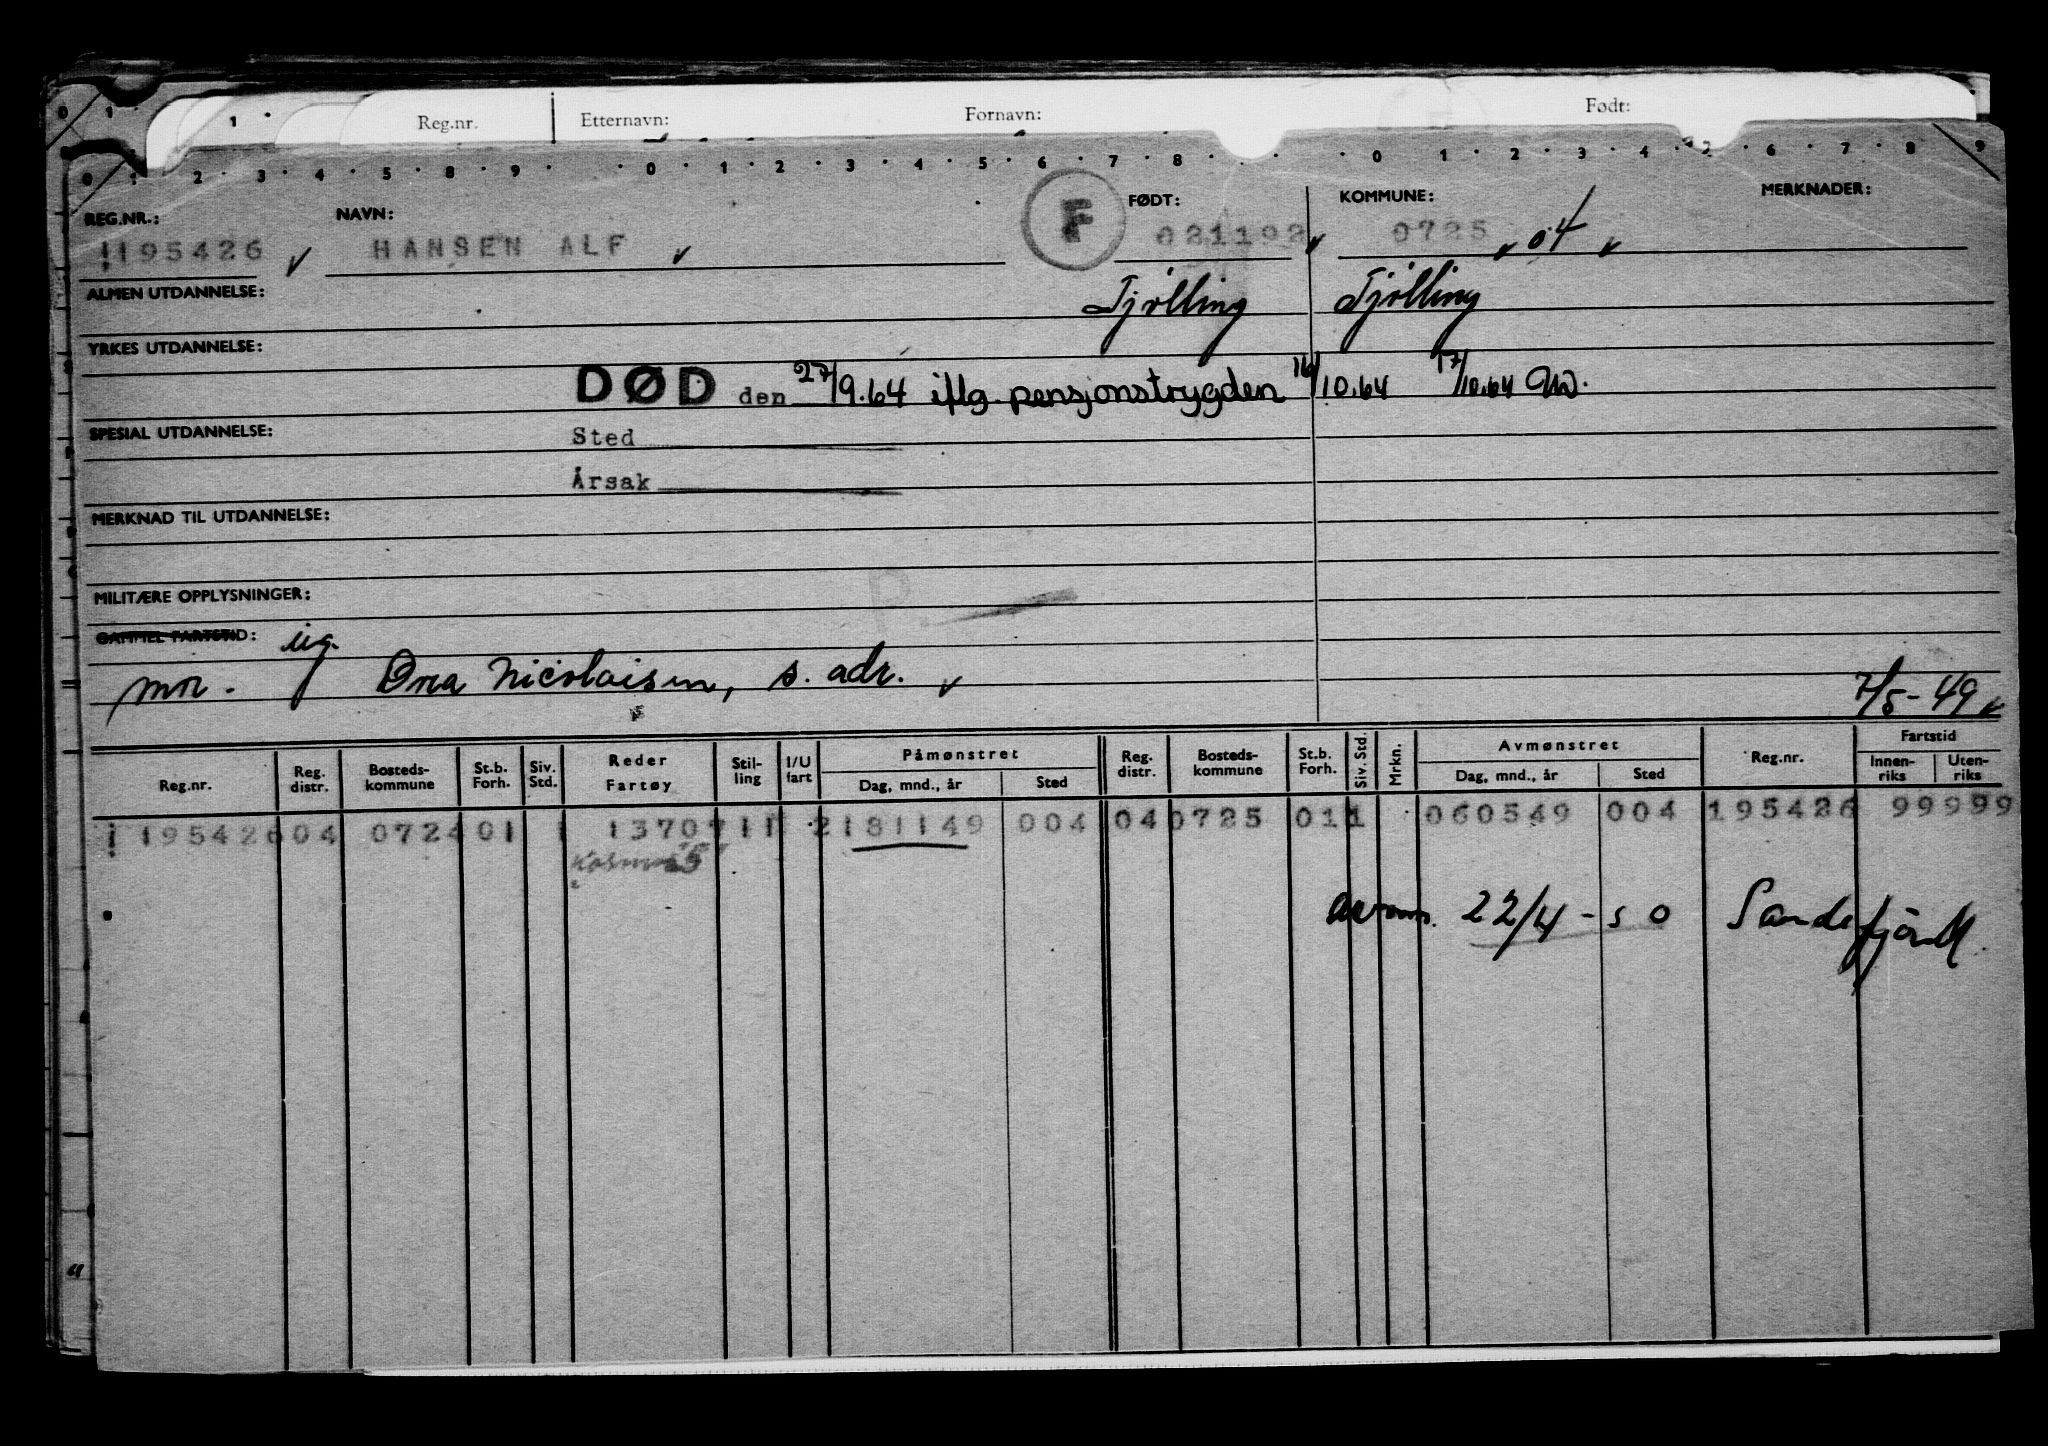 Reg.nr. Etternavn: Fornavn: Født:
0 1 2 3 4 5 8 9 0 1 2 3 4 5 6 7 8 0 1 2 3 4 5 6 7 8 9
REG.NR.: NAVN: F FØDT: KOMMUNE: MERKNADER:
195426 HANSEN ALF 021192 0725 04
ALMEN UTDANNELSE: Tjølling Tjølling
YRKES UTDANNELSE:
DØD den 27/9.64 iflg. pensjonstrygden 16/10.64 17/10.64
SPESIAL UTDANNELSE: Sted
Årsak
MERKNAD TIL UTDANNELSE:
MILITÆRE OPPLYSNINGER:
GAMMEL FARTSTID: ug.
mor. Nicolaisen, s. adr. 7/5-49
Reg.nr. Reg. distr. Bosteds-kommune St.b. Forh. Siv. Std. Reder Fartøy Stil-ling I/U fart Påmønstret Dag, mnd., år Sted Reg. distr. Bosteds-kommune St.b. Forh. Siv. Std. Mrkn. Avmønstret Dag, mnd., år Sted Reg.nr. Fartstid Innen-riks Uten-riks
195426 04 0724 01 1 13707 11 2 181149 004 04 0725 01 1 1 060549 004 195426 99999
Kosmos 5
avm. 22/4-50 Sandefjord